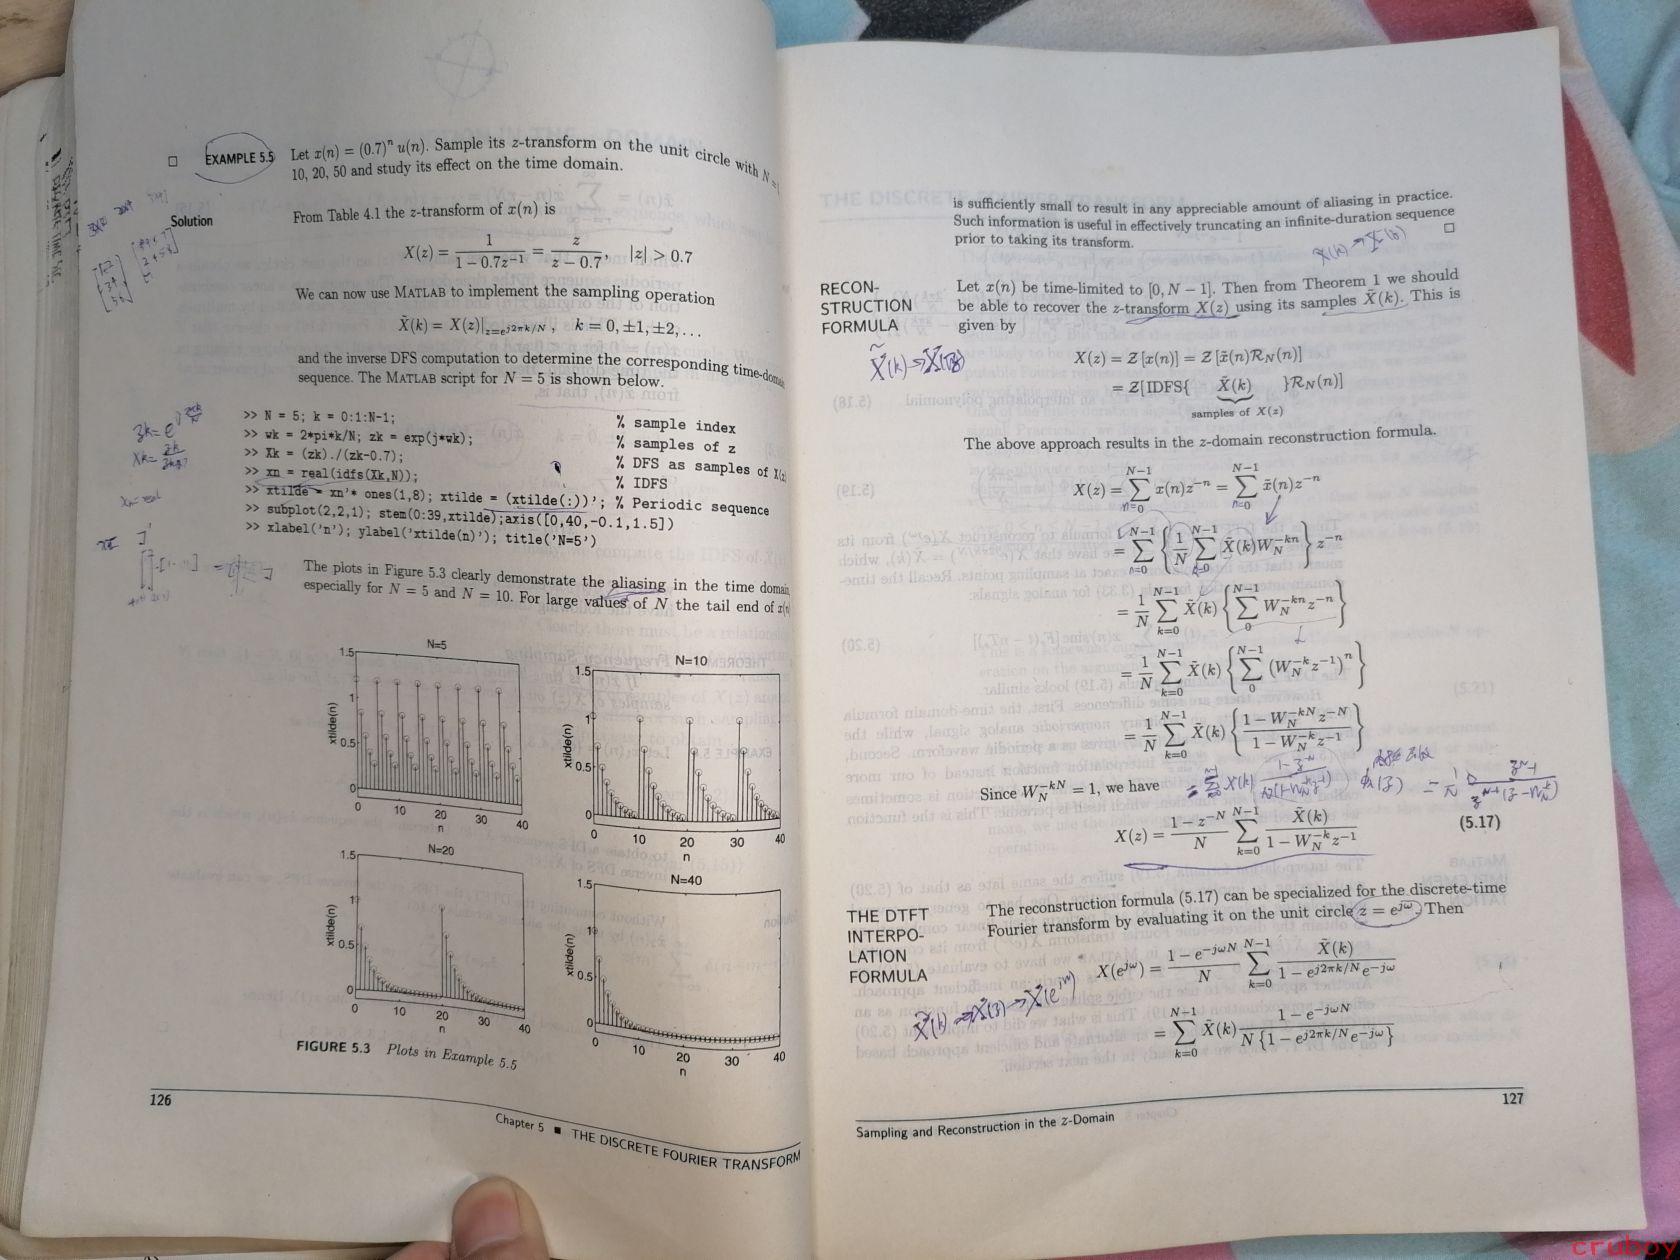 □ EXAMPLE 5.5 Let x(n) = (0.7)ⁿ u(n). Sample its z-transform on the unit circle with N =
10, 20, 50 and study its effect on the time domain.
Solution From Table 4.1 the z-transform of x(n) is
X(z) = 1/(1 − 0.7z⁻¹) = z/(z − 0.7), |z| > 0.7
We can now use MATLAB to implement the sampling operation
X̃(k) = X(z)|_{z=e^{j2πk/N}}, k = 0, ±1, ±2, ...
and the inverse DFS computation to determine the corresponding time-domain
sequence. The MATLAB script for N = 5 is shown below.
>> N = 5; k = 0:1:N-1; % sample index
>> wk = 2*pi*k/N; zk = exp(j*wk); % samples of z
>> Xk = (zk)./(zk-0.7); % DFS as samples of X(z)
>> xn = real(idfs(Xk,N)); % IDFS
>> xtilde = xn'* ones(1,8); xtilde = (xtilde(:))'; % Periodic sequence
>> subplot(2,2,1); stem(0:39,xtilde);axis([0,40,-0.1,1.5])
>> xlabel('n'); ylabel('xtilde(n)'); title('N=5')
The plots in Figure 5.3 clearly demonstrate the aliasing in the time domain,
especially for N = 5 and N = 10. For large values of N the tail end of x(n)
N=5
1.5
1
0.5
0
xtilde(n)
0 10 20 30 40
n
N=10
1.5
1
0.5
0
xtilde(n)
0 10 20 30 40
n
N=20
1.5
1
0.5
0
xtilde(n)
0 10 20 30 40
n
N=40
1.5
1
0.5
0
xtilde(n)
0 10 20 30 40
n
FIGURE 5.3 Plots in Example 5.5
126
Chapter 5 ■ THE DISCRETE FOURIER TRANSFORM
is sufficiently small to result in any appreciable amount of aliasing in practice.
Such information is useful in effectively truncating an infinite-duration sequence
prior to taking its transform. □
RECON-
STRUCTION
FORMULA
Let x(n) be time-limited to [0, N − 1]. Then from Theorem 1 we should
be able to recover the z-transform X(z) using its samples X̃(k). This is
given by
X̃(k)→X(z)
X(z) = Z[x(n)] = Z[x̃(n)R_N(n)]
= Z[IDFS{ X̃(k) }R_N(n)]
samples of X(z)
The above approach results in the z-domain reconstruction formula.
X(z) = ∑_{n=0}^{N−1} x(n)z⁻ⁿ = ∑_{n=0}^{N−1} x̃(n)z⁻ⁿ
= ∑_{n=0}^{N−1} {1/N ∑_{k=0}^{N−1} X̃(k)W_N^{−kn}} z⁻ⁿ
= 1/N ∑_{k=0}^{N−1} X̃(k) {∑_{0}^{N−1} W_N^{−kn} z⁻ⁿ}
= 1/N ∑_{k=0}^{N−1} X̃(k) {∑_{0}^{N−1} (W_N^{−k} z⁻¹)ⁿ}
= 1/N ∑_{k=0}^{N−1} X̃(k) {(1 − W_N^{−kN} z^{−N})/(1 − W_N^{−k} z⁻¹)}
Since W_N^{−kN} = 1, we have
X(z) = (1 − z^{−N})/N ∑_{k=0}^{N−1} X̃(k)/(1 − W_N^{−k} z⁻¹) (5.17)
THE DTFT
INTERPO-
LATION
FORMULA
The reconstruction formula (5.17) can be specialized for the discrete-time
Fourier transform by evaluating it on the unit circle z = e^{jω}. Then
X(e^{jω}) = (1 − e^{−jωN})/N ∑_{k=0}^{N−1} X̃(k)/(1 − e^{j2πk/N}e^{−jω})
X̃(k)→X(z)→X(e^{jω})
= ∑_{k=0}^{N−1} X̃(k) (1 − e^{−jωN})/(N{1 − e^{j2πk/N}e^{−jω}})
Sampling and Reconstruction in the z-Domain
127
cruboy